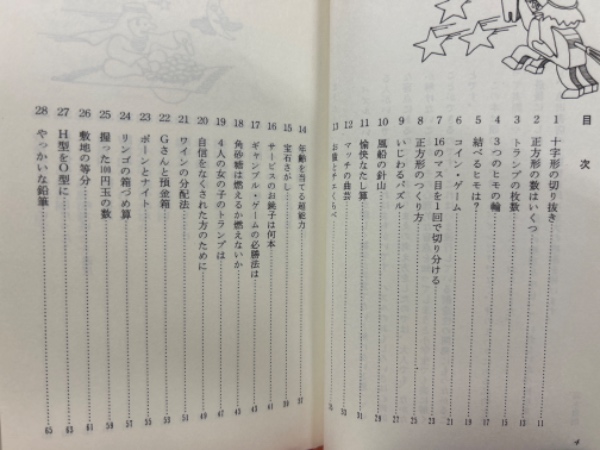 目次
1 十字形の切り抜き 11
2 正方形の数はいくつ 13
3 トランプの枚数 15
4 3つのヒモの輪 17
5 結べるヒモは? 19
6 コイン・ゲーム 21
7 16のマス目を1回で切り分ける 23
8 正方形のつくり方 25
9 いじわるパズル 27
10 風船の針山 29
11 愉快なたし算 31
12 マッチの曲芸 33
13 お猿とチエくらべ 35
4
14 年齢を当てる超能力 37
15 宝石さがし 39
16 サービスのお銚子は何本 41
17 ギャンブル・ゲームの必勝法は 43
18 角砂糖は燃えるか燃えないか 45
19 4人の女の子のトランプは 47
20 自信をなくされた方のために 49
21 ワインの分配法 51
22 Gさんと預金箱 53
23 ポーンとナイト 55
24 リンゴの箱づめ算 57
25 掘った100円玉の数 58
26 敷地の等分 61
27 H型をO型に 63
28 やっかいな鉛筆 65